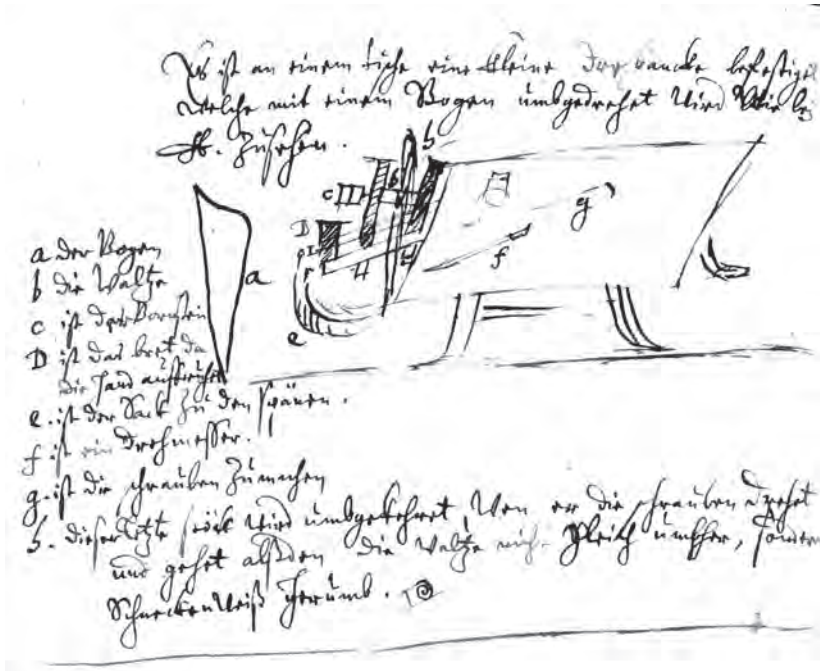 Es ist an einem tische eine kleine befestiget
welche mit einem Bogen umbgedrehet wird wie bey
zusehen.
h
c
b
D
H
a
e
f
g
a der Bogen
b die Waltze
c ist der Bornstein
D ist das bret da
die Hand auffruhet
e. ist der Sack zu den spänen.
f ist ein Drehmesser.
g. ist die schrauben zumachen
h. dieser letzte stock wird umbgekehret wen er die schrauben drehet
und gehet alßden die waltze nicht gleich umbher, sondern
Schneckenweiß herumb.